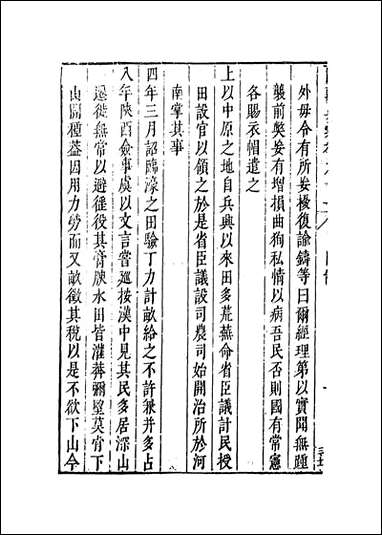 外毋令有所妄擾復諭鑄等曰爾經理第以實聞無踵
襲前獘妄有增損曲狥私情以病吾民否則國有常憲
各賜衣帽遣之
上以中原之地自兵興以來田多荒蕪命省臣議計民授
田設官以領之於是省臣議設司農司始開治所於河
南掌其事
四年三月詔臨濠之田驗丁力計畝給之不許兼并多占
八年陝西僉事虞以文言嘗巡按漢中見其民多居深山
遷徙無常以避徭役其膏腴水田皆灌莽彌望莫肯下
山開種葢因用力勞而又畝徵其稅以是不欲下山今